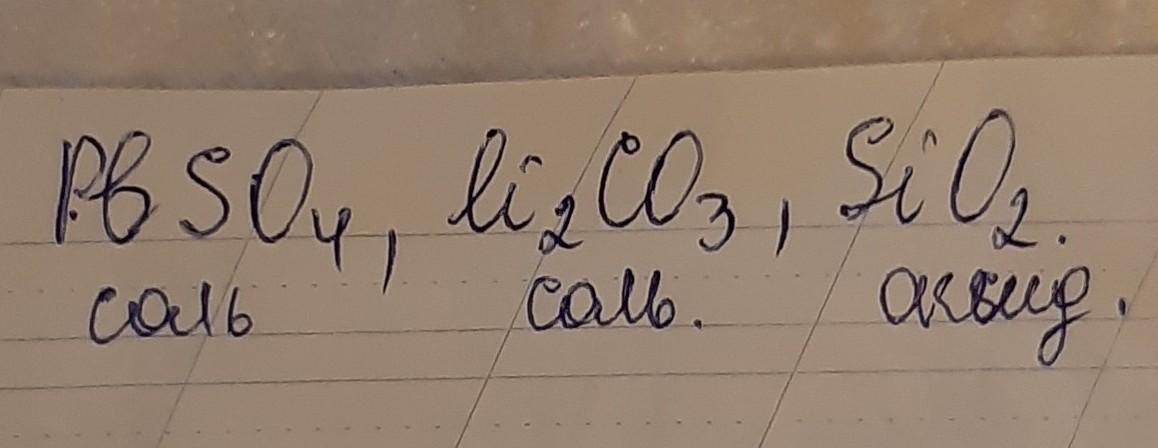 PbSO₄, li₂CO₃, SiO₂.
соль соль. оксид.